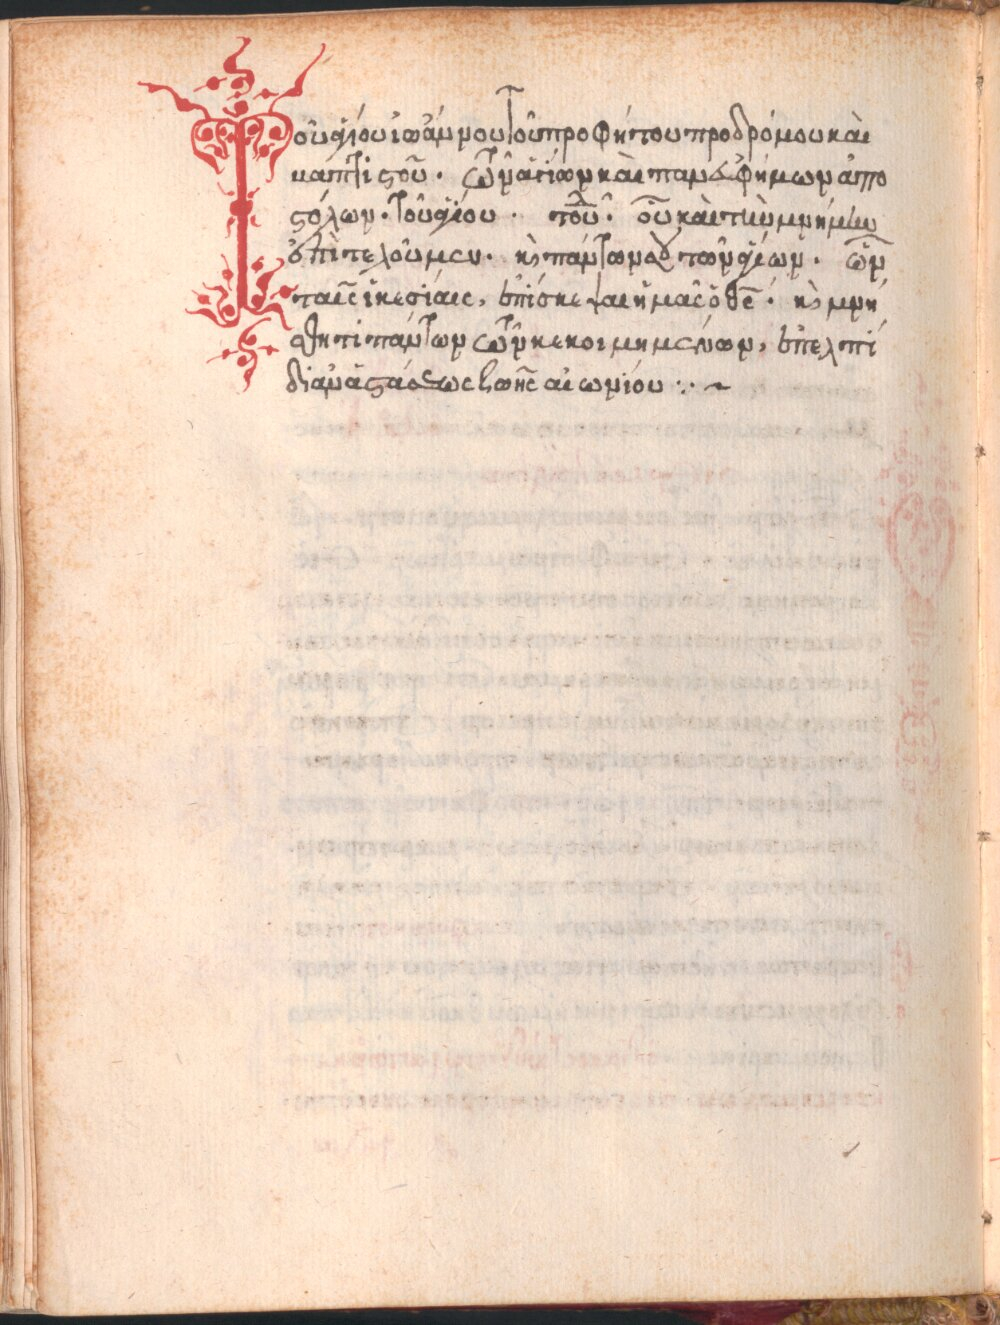 Τοῦ ἁγίου ἰωάννου τοῦ προφήτου προδρόμου καὶ
βαπτιστοῦ. τῶν ἁγίων καὶ πανευφήμων ἀπο
στόλων. τοῦ ἁγίου. τοῦ δ. οὗ καὶ τὴν μνήμην
ἐπιτελοῦμεν. κ πάντων σου τῶν ἁγίων. ὧν
ταῖς ἱκεσίαις, ἐπίσκεψαι ἡμᾶς ὁ θς. κ μνή
σθητι πάντων τῶν κεκοιμημένων, ἐπ ελπί
δι ἀναστάσεως ζωῆς αἰωνίου :. ~